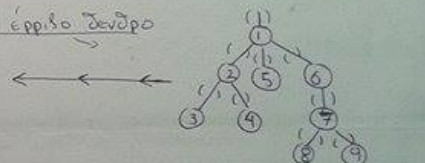 έρριζο δενδρο
( )
1
2 5 6
3 4 7
8 9